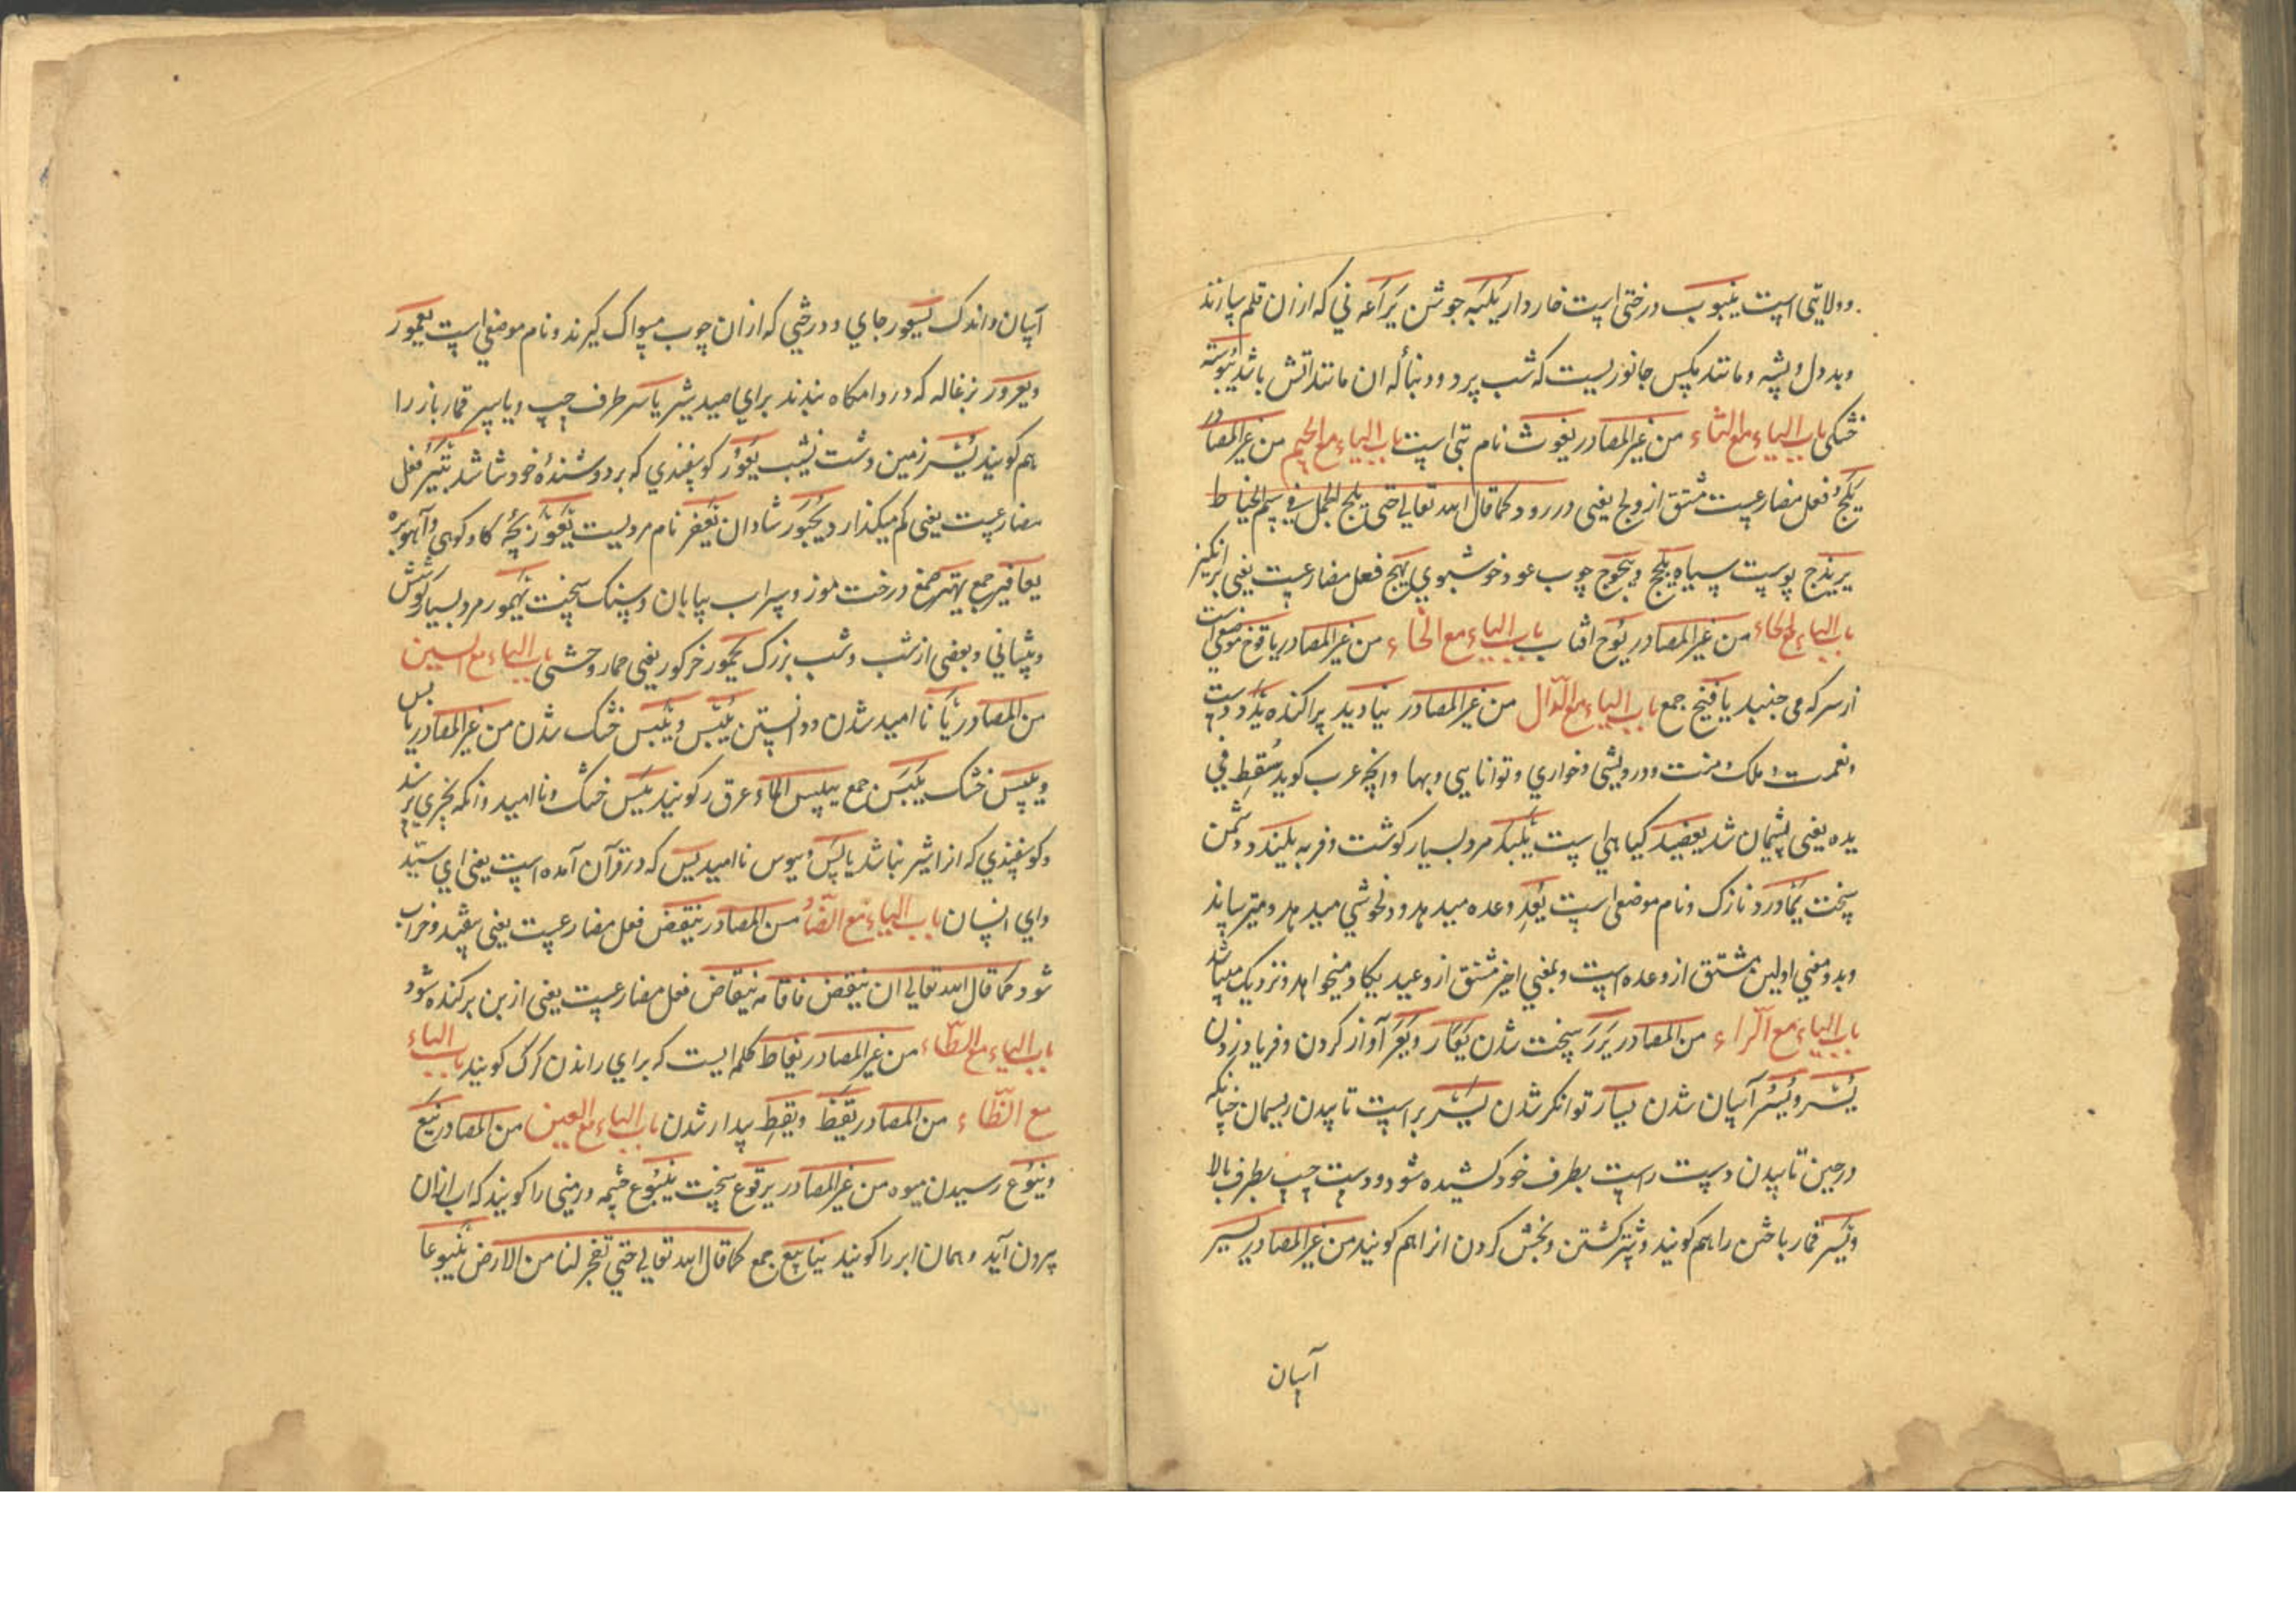 وولایتی است ینبوب درختی است خاردار یلبه جوشن یراعه نی که ازان قلم سازند
وبددل وپشه ومانند مکس جانوریست که شب پرد ودنباله ان مانند اتش باشد یبوسته
خشکی باب الیاء مع الثاء من غیر المصادر یغوث نام بتی است باب الیاء مع الجیم من غیر المصادر
یلج فعل مضارعیست مشتق از ولج یعنی در رود کما قال الله تعالی حتی یلج الجمل فی سم الخیاط
یرندج پوست سیاه یلنجج وینجوج چوب عود خوشبوی یهیج فعل مضارعیست یعنی برانکیز
باب الیاء مع الحاء من غیر المصادر یوح افتاب باب الیاء مع الخاء من غیر المصادر یافوخ موضعی است
از سر که می جنبد یافیخ جمع باب الیاء مع الدال من غیر المصادر ینادید پراکنده ید دست
ونعمت وملک ومنت ودرویشی وخواری وتوانایی وبها وانچه عرب کوید سقط فی
یده یعنی پشیمان شد یعضید کیاهی است یلبد مرد بسیار کوشت وفربه یلندد دشمن
سخت یماورد نازک ونام موضعی است یعد وعده میدهد ودلخوشی میدهد ومیترساند
وبدو معنی اولین مشتق از وعده است وبمعنی اخیر مشتق از وعید یکاد میخواهد ونزدیک میباشد
باب الیاء مع الراء من المصادر یرر سخت شدن یعار ویعر آواز کردن وفریاد زدن
یسر ویسر آسان شدن یسار توانکر شدن یسر براست تابیدن ریسمان چنانکه
درحین تابیدن دست راست بطرف خود کشیده شود ودست چپ بطرف بالا
ویسر قمار باختن را هم کویند وشتر کشتن وبخش کردن انرا هم کویند من غیر المصادر یسیر
آسان
آسان واندک یسعور جای ودرختی که ازان چوب مسواک کیرند ونام موضعی است یعمور
ویعرور بزغاله که در دامکاه بندند برای صید شیر یاسر طرف چپ ویاسر قمارباز را
هم کویند یسر زمین دشت نشیب یعور کوسفندی که بر دوشنده خود شاشد یتیر فعل
مضارعیست یعنی کم میکذارد یحبور شادان یعفر نام مردیست یعفور بچه کاو کوهی وآهو بره
یعافیر جمع یهیر صمغ درخت موز وسراب بیابان وسنک سخت یهمور مرد بسیار کوشش
وپیشانی وبعضی از شب وشب بزرک یحمور خر کور یعنی حمار وحشی باب الیاء مع السین
من المصادر یأس ناامید شدن ودانستن یبس ویبس خشک شدن من غیر المصادر یابس
ویبس خشک یبس جمع یبیس الماء عرق را کویند یئس خشک وناامید وانکه بچیزی نرسد
وکوسفندی که انرا شیر نباشد یاس ویوس ناامید یس که در قرآن آمده است یعنی ای سید
وای انسان باب الیاء مع الضاد من المصادر ینقض فعل مضارعیست یعنی بیفتد وخراب
شود کما قال الله تعالی ان ینقض فاقامه ینقاض فعل مضارعیست یعنی از بن برکنده شود
باب الیاء مع الطاء من غیر المصادر یعاط کلمه ایست که برای راندن کرک کویند باب الیاء
مع الظاء من المصادر یقظ ویقظ بیدار شدن باب الیاء مع العین من المصادر ینع
وینوع رسیدن میوه من غیر المصادر یرقوع سخت ینبوع چشمه وزمینی را کویند که اب ازان
بیرون آید وهمان ابر را کویند ینابیع جمع کما قال الله تعالی حتی تفجر لنا من الارض ینبوعا